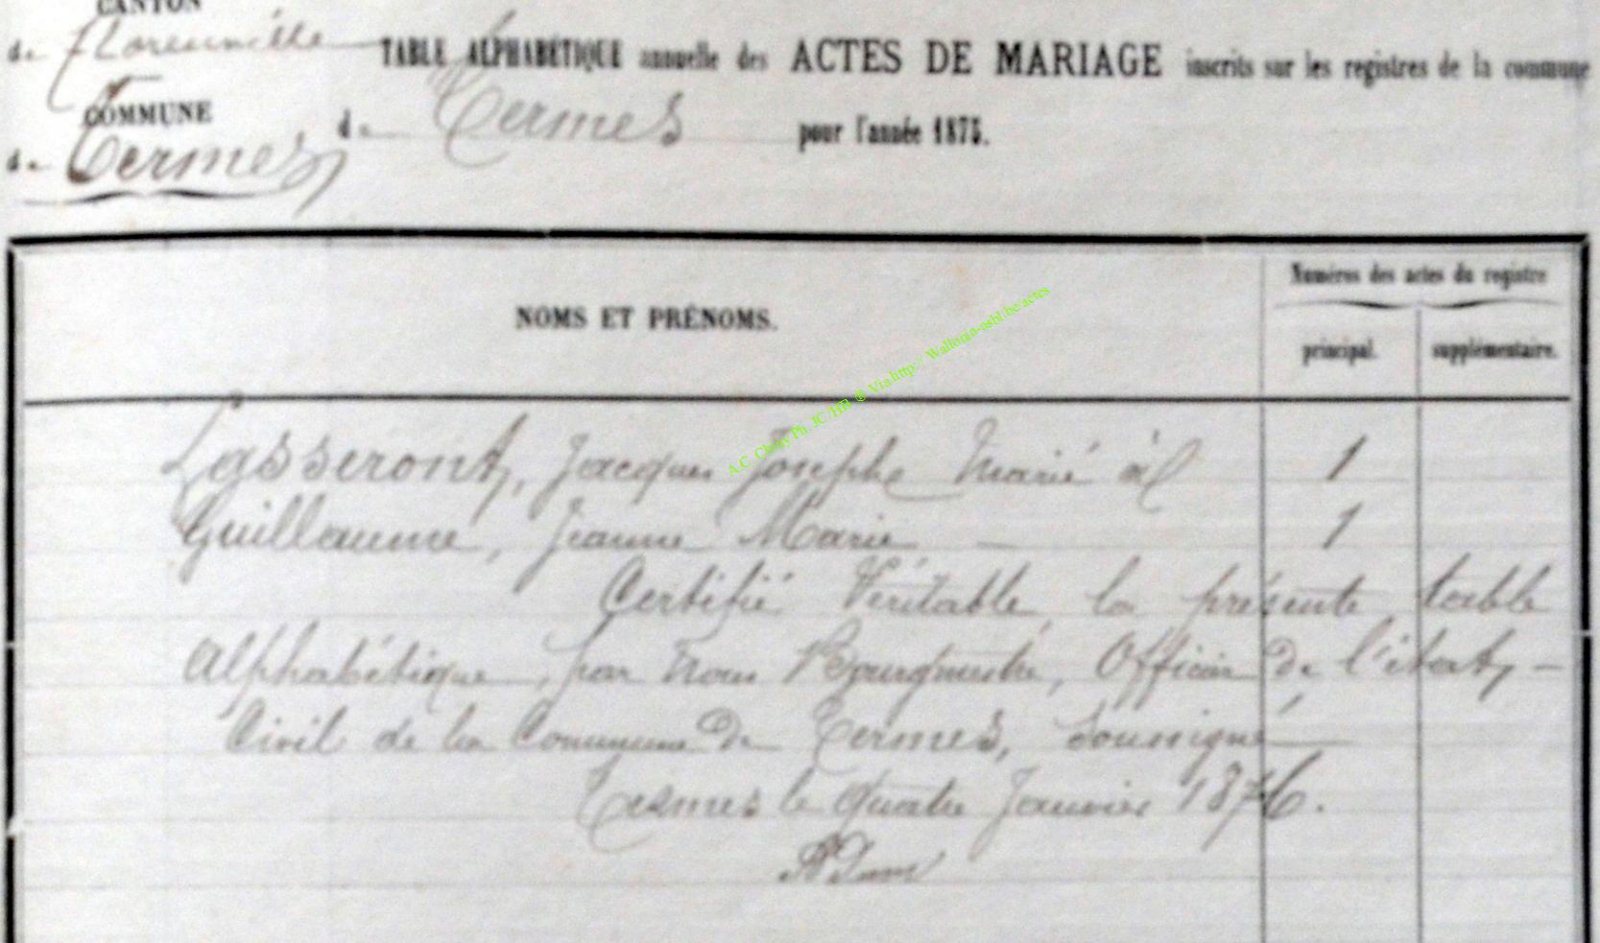 CANTON
de Florenville
TABLE ALPHABÉTIQUE annuelle des ACTES DE MARIAGE inscrits sur les registres de la commune
COMMUNE
de Termes
de Termes pour l'année 1875.
NOMS ET PRÉNOMS.
Numéros des actes du registre
principal. supplémentaire.
Lasseront, Jacques Josephe Marié à 1
Guillaume, Jeanne Marie — 1
Certifié Véritable la présente table
Alphabétique, par nous Bourgmestre, Officier de l'état, —
Civil de la Commune de Termes, soussigné —
Termes le quatre Janvier 1876.